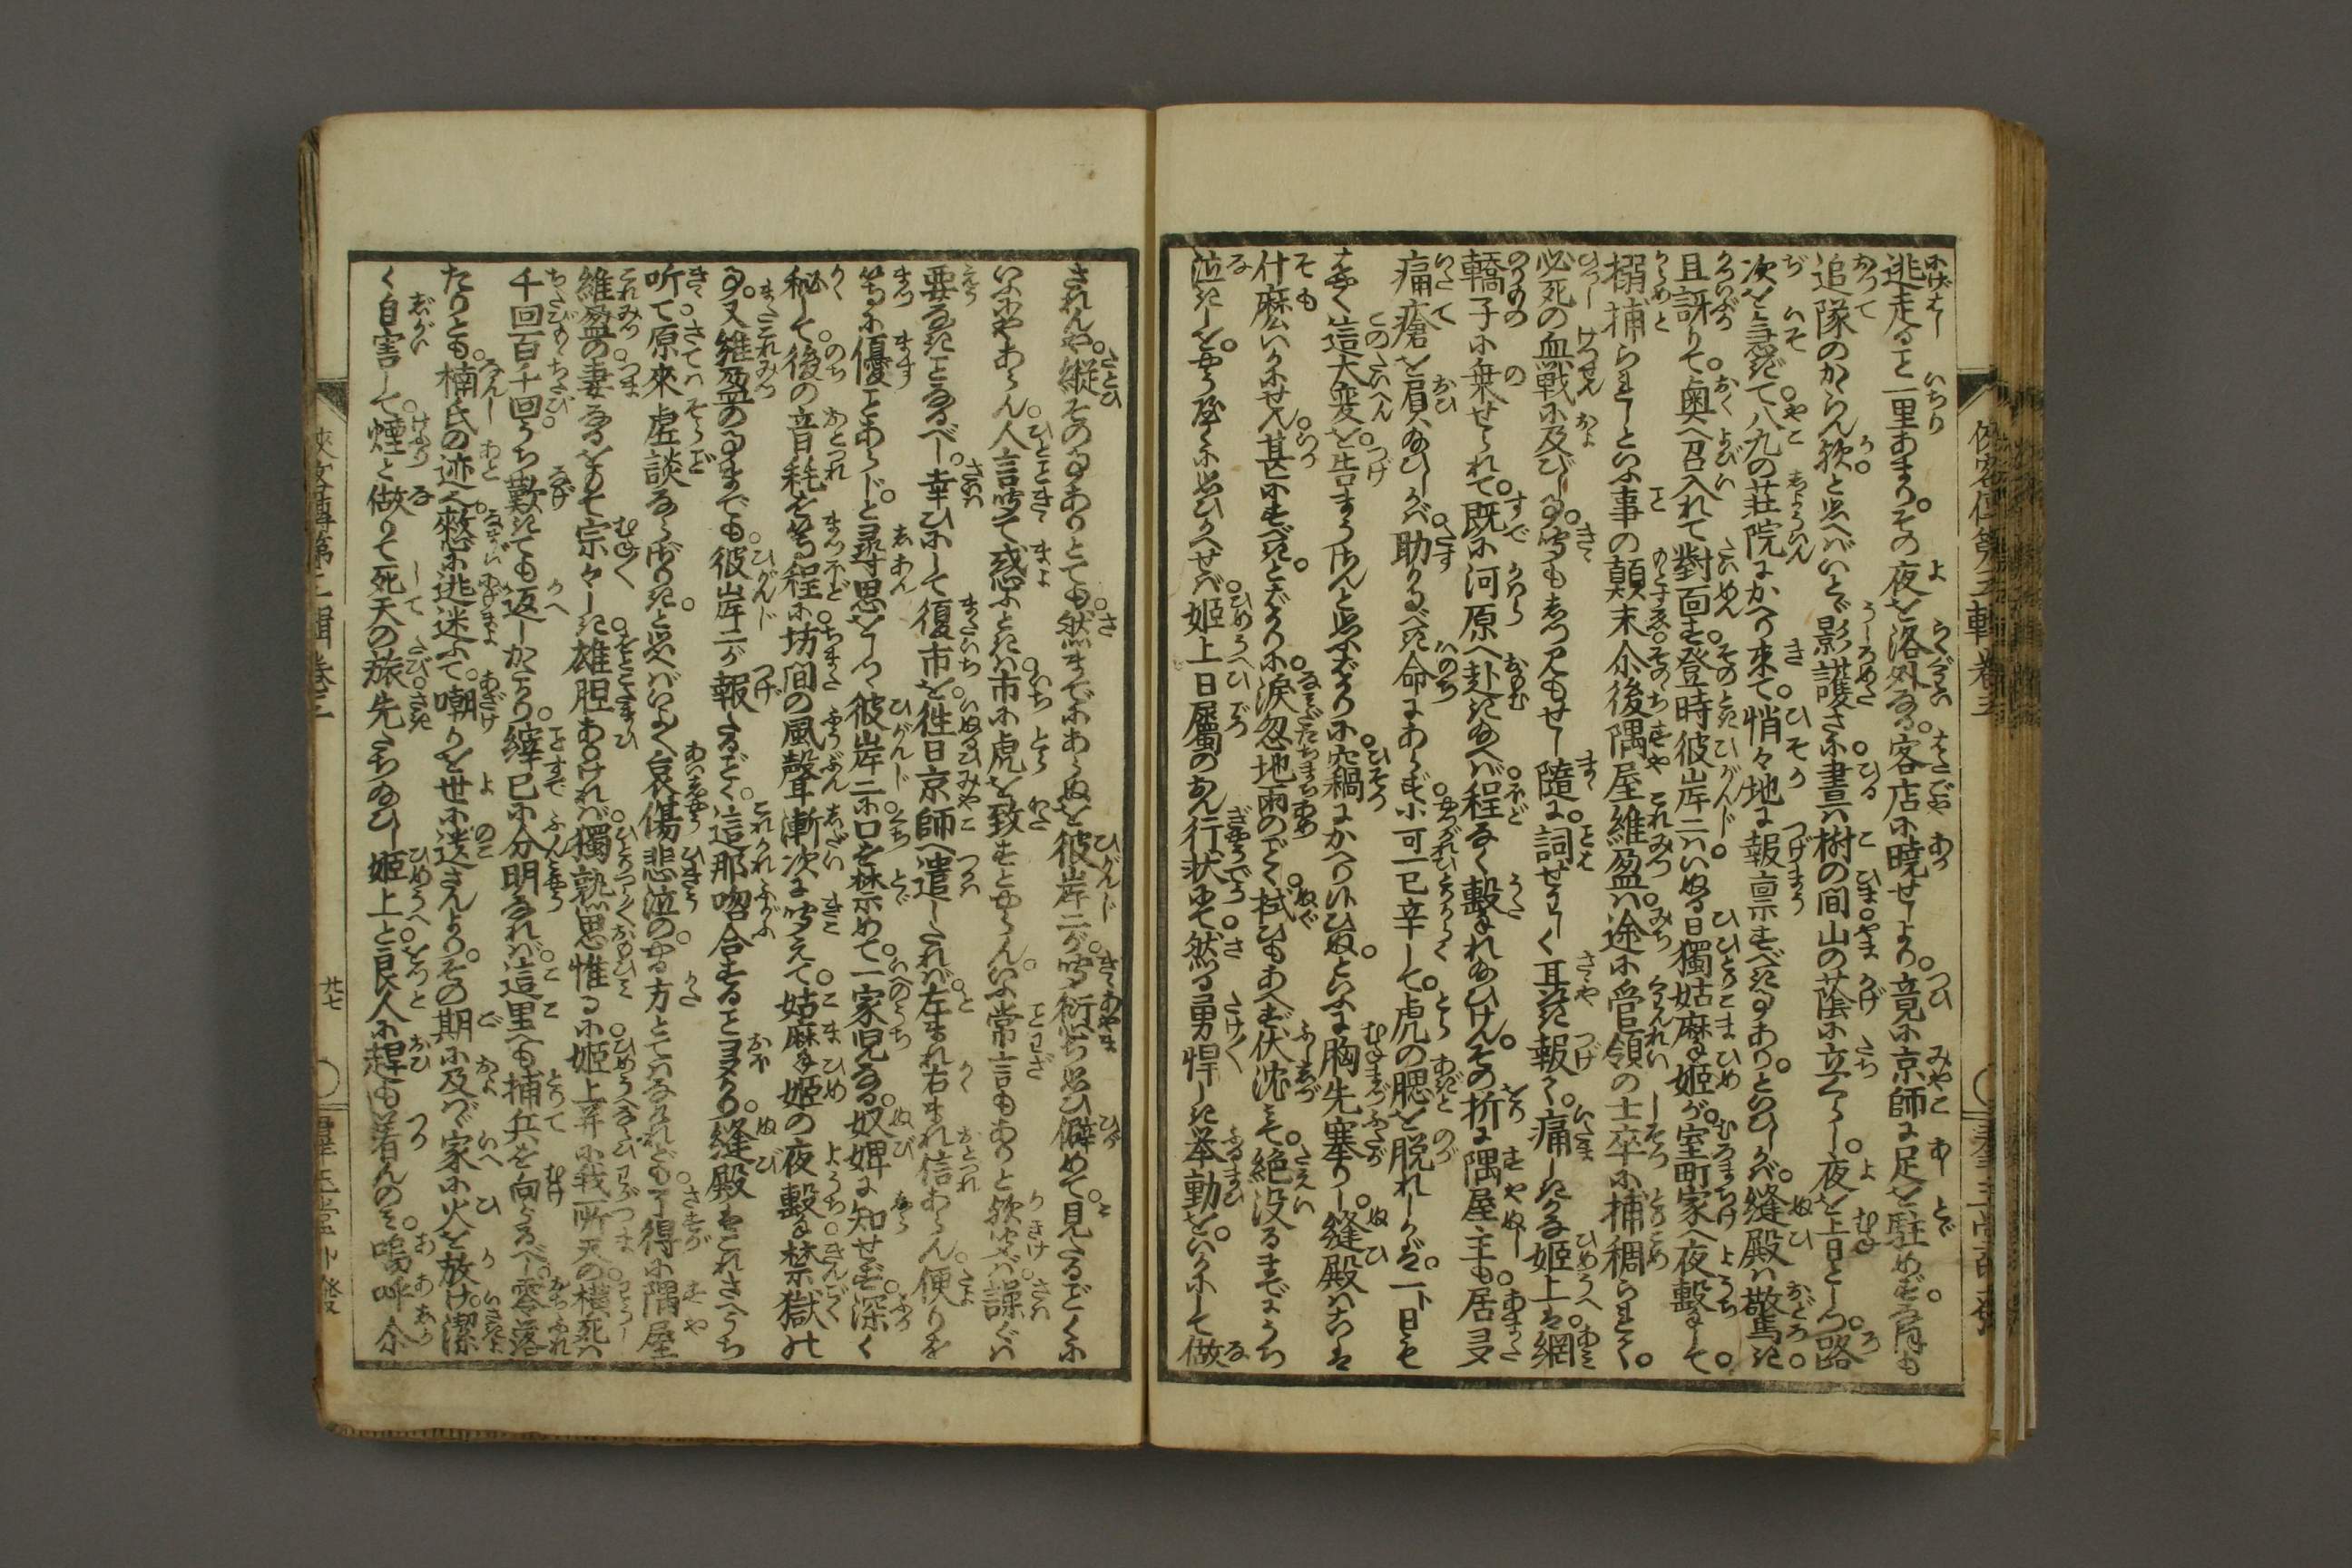 逃走ること一里あまり。その夜を洛外なる。客店に曉せしより。竟に京師に足を駐めず。
追隊のかゝらん歟と思へバいとゞ影護さに晝ハ樹の間山の蔭に立くらし。夜を上日としつ。路
次を急ぎて八九の荘院にかへり来て悄々地に報禀すべき事あり。といひしかバ。縫殿ハ驚き
且訝りて。奥へ召入れて對面す登時彼岸二ハいぬる日獨姑麻姫が。室町家へ夜轂して
搦捕られしといふ事の顛末尒後隅屋維盈ハ途に管領の士卒に捕稠られて。
必死の血戦に及びし事。聞もし見もせし隨に。詞せわしく耳語き報て。痛しきかな姫上ハ網
轎子に乗せられて。既に河原へ赴きあへバ程なく轂れあひけん。その折に隅屋主も居多
痛瘡を負ひあひしかバ助かるべき命にあらず小可一已辛じて。虎の腮を脱れしかど。一ト日も
はやく這大変を告まうさんと思ふばかりに窃にかへり候ひぬ。といふに胸先塞りし。縫殿ハ
什麽いかにせん。甚にすべき。とばかりに涙忽地雨のごとく。拭ひもあへず伏沈みて。絶没るまでにうち
泣きしを。やうやくに思ひかへせバ。姫上日属のおん行状にて然る勇悍しき挙動を。いかにして做
されんや。縦その事ありとても。然までにあらぬを彼岸二が。聞衍ち思ひ僻めて。見たるごとくに
いふにやあらん。人言聞て惑ふときハ。市に虎を致すとやらん。いふ常言もありと歟聞バ譟ぐハ
要なきことなるべし。幸ひにして復市を。往日京師へ遣したれバ。左まれ右まれ信あらん。便りを
等に優ことあらじ。と尋思をしつゝ彼岸二に口を禁めて。一家児なる。奴婢に知せず。深く
秘して。後の音耗を等程に。坊間の風聲漸次に聞えて。姑麻姫の夜轂禁獄の
事。又維盈の事までも。彼岸二が報たるごとく。這那吻合することヨ多かり。縫殿ハこれさへうち
听て。原來虚談ならざりき。と思へバいよゝ哀傷悲泣の。やる方とてハなけれども。了得に隅屋
維盈の妻なるをもて宗々しき。雄胆あるけれバ。獨熟思惟るに。姫上并に我所天の横死ハ
千回百千回。うち歎きても返しかたかり。縡已に分明なれバ。這里へも捕兵を向らるべし。零落
たりとも。楠氏の迹。憖に逃迷ふて。嘲りを世に遺さんより。その期に及バゞ家に火を放け。潔
く自害して。煙と做りて死天の旅。先たちあひし姫上と。良人に趕も着んのミ。嗚呼尒
俠客傳第二輯巻三
廿七